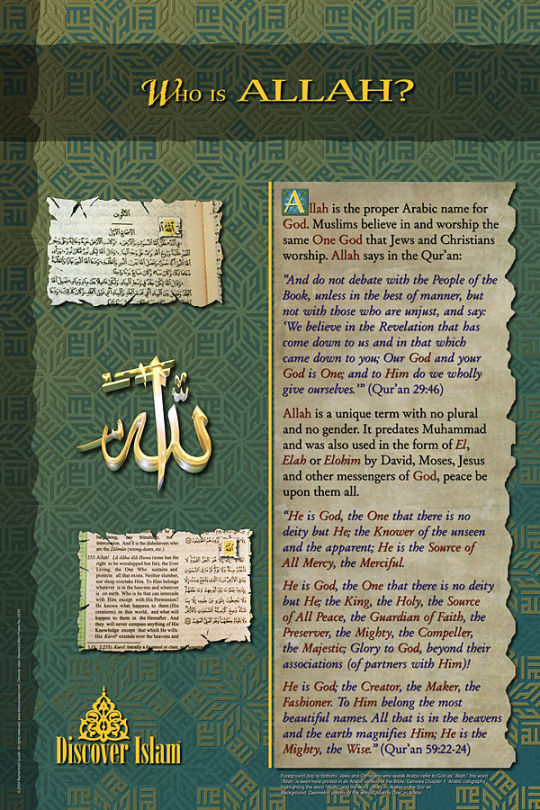 WHO IS ALLAH?
Allah is the proper Arabic name for
God. Muslims believe in and worship the
same One God that Jews and Christians
worship. Allah says in the Qur’an:
“And do not debate with the People of the
Book, unless in the best of manner, but
not with those who are unjust, and say:
‘We believe in the Revelation that has
come down to us and in that which
came down to you; Our God and your
God is One; and to Him do we wholly
give ourselves.’” (Qur’an 29:46)
Allah is a unique term with no plural
and no gender. It predates Muhammad
and was also used in the form of El,
Elah or Elohim by David, Moses, Jesus
and other messengers of God, peace be
upon them all.
“He is God, the One that there is no
deity but He; the Knower of the unseen
and the apparent; He is the Source of
All Mercy, the Merciful.
He is God, the One that there is no deity
but He; the King, the Holy, the Source
of All Peace, the Guardian of Faith, the
Preserver, the Mighty, the Compeller,
the Majestic; Glory to God, beyond their
associations (of partners with Him)!
He is God; the Creator, the Maker, the
Fashioner. To Him belong the most
beautiful names. All that is in the heavens
and the earth magnifies Him; He is the
Mighty, the Wise.” (Qur’an 59:22-24)
الله
intercession. And it is the disbelievers who
are the Zâlimûn (wrong-doers, etc.).
255. Allah! Lâ ilâha illâ Huwa (none has the
right to be worshipped but He), the Ever
Living, the One Who sustains and
protects all that exists. Neither slumber,
nor sleep overtake Him. To Him belongs
whatever is in the heavens and whatever
is on earth. Who is he that can intercede
with Him except with His Permission?
He knows what happens to them (His
creatures) in this world, and what will
happen to them in the Hereafter. And
they will never compass anything of His
Knowledge except that which He wills.
His Kursî extends over the heavens and
Discover Islam
Foreground (top to bottom): Jews and Christians who speak Arabic refer to God as "Allah," the word